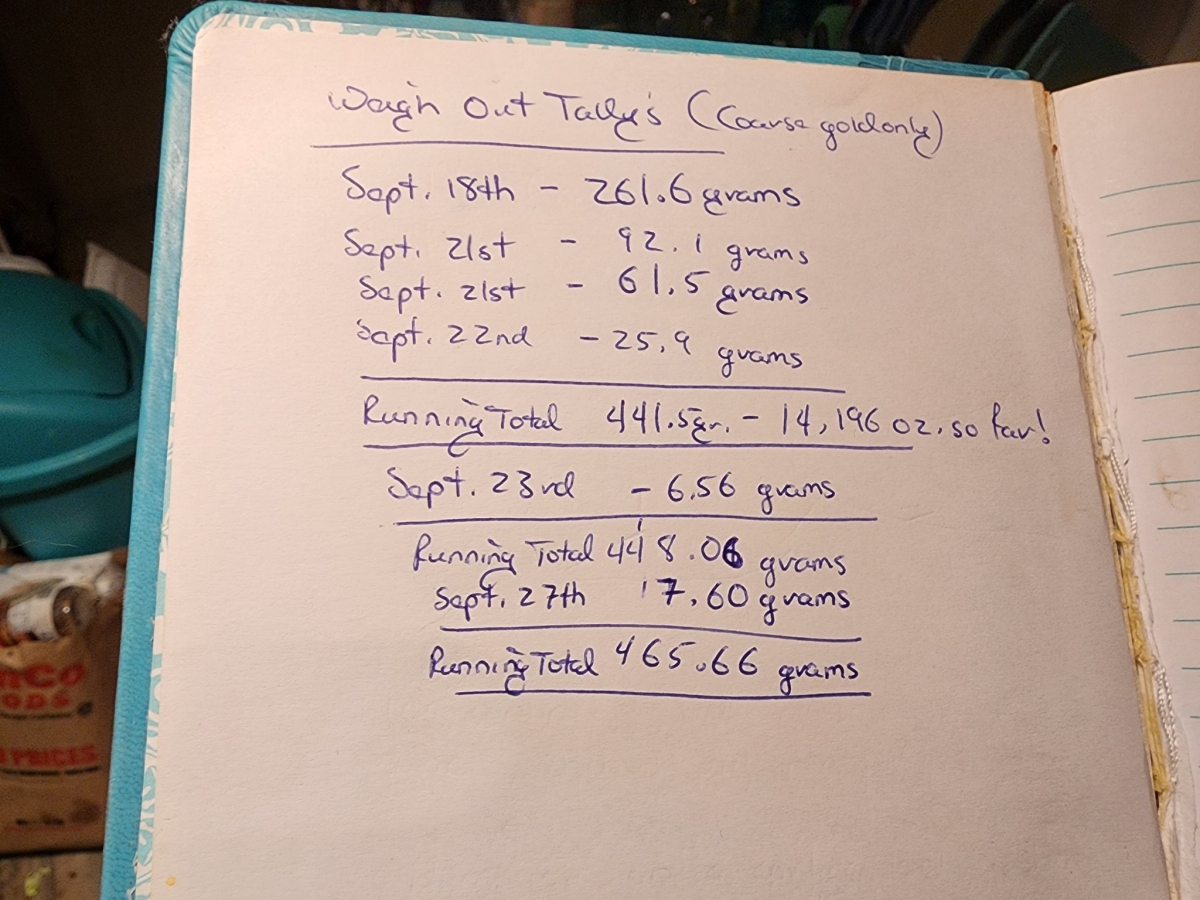 Weigh Out Tally's (Coarse gold only)
Sept. 18th - 261.6 grams
Sept. 21st - 92.1 grams
Sept. 21st - 61.5 grams
Sept. 22nd - 25.9 grams
Running Total 441.5gr. - 14,196 oz. so far!
Sept. 23rd - 6.56 grams
Running Total 448.06 grams
Sept. 27th 17.60 grams
Running Total 465.66 grams
PRICES